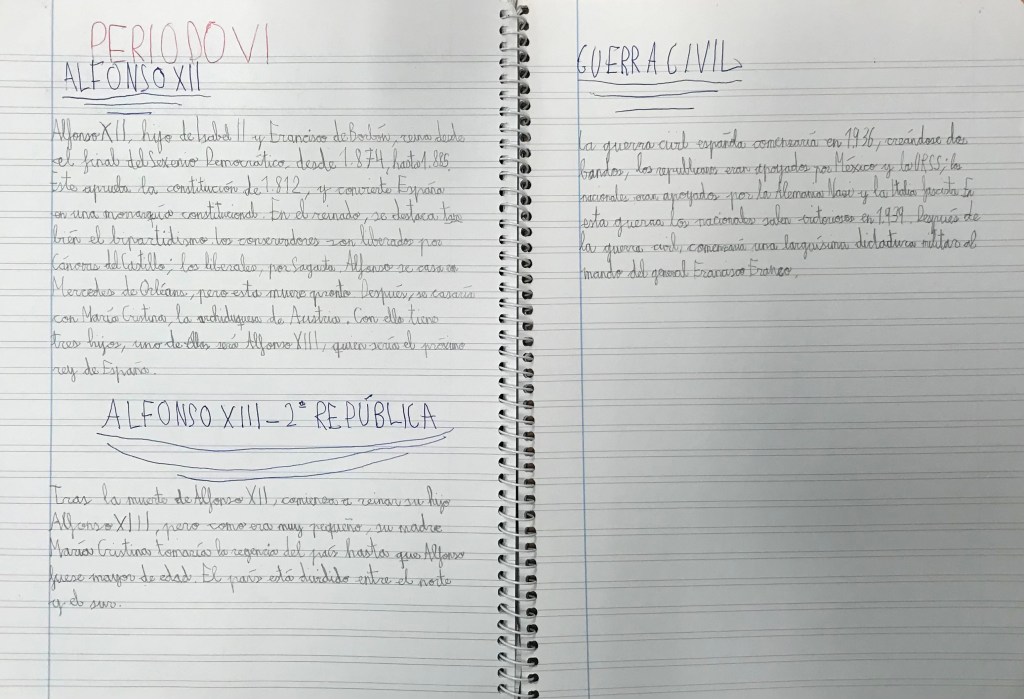 PERIODO VI
ALFONSO XII
Alfonso XII, hijo de Isabel II y Francisco de Borbón, reina desde
el final del Sexenio Democrático, desde 1.874, hasta 1.885.
Este aprueba la constitución de 1.812, y convierte España
en una monarquía constitucional. En el reinado, se destaca tam
bién el bipartidismo los conservadores son liberados por
Cánovas del Castillo; los liberales, por Sagasta. Alfonso se casa con
Mercedes de Orléans, pero esta muere pronto. Después, se casaría
con María Cristina, la archiduquesa de Austria. Con ella tiene
tres hijos, uno de ellos será Alfonso XIII, quien sería el próximo
rey de España.
ALFONSO XIII - 2ª REPÚBLICA
Tras la muerte de Alfonso XII, comienza a reinar su hijo
Alfonso XIII, pero como era muy pequeño, su madre
María Cristina tomaría la regencia del país hasta que Alfonso
fuese mayor de edad. El país está dividido entre el norte
y el sur.
GUERRA CIVIL
La guerra civil española comenzaría en 1.936, creándose dos
bandos, los republicanos eran apoyados por México y la URSS; los
nacionales eran apoyados por la Alemania Nazi y la Italia fascista. En
esta guerra los nacionales salen victoriosos en 1.939. Después de
la guerra civil, comenzará una larguísima dictadura militar al
mando del general Francisco Franco.